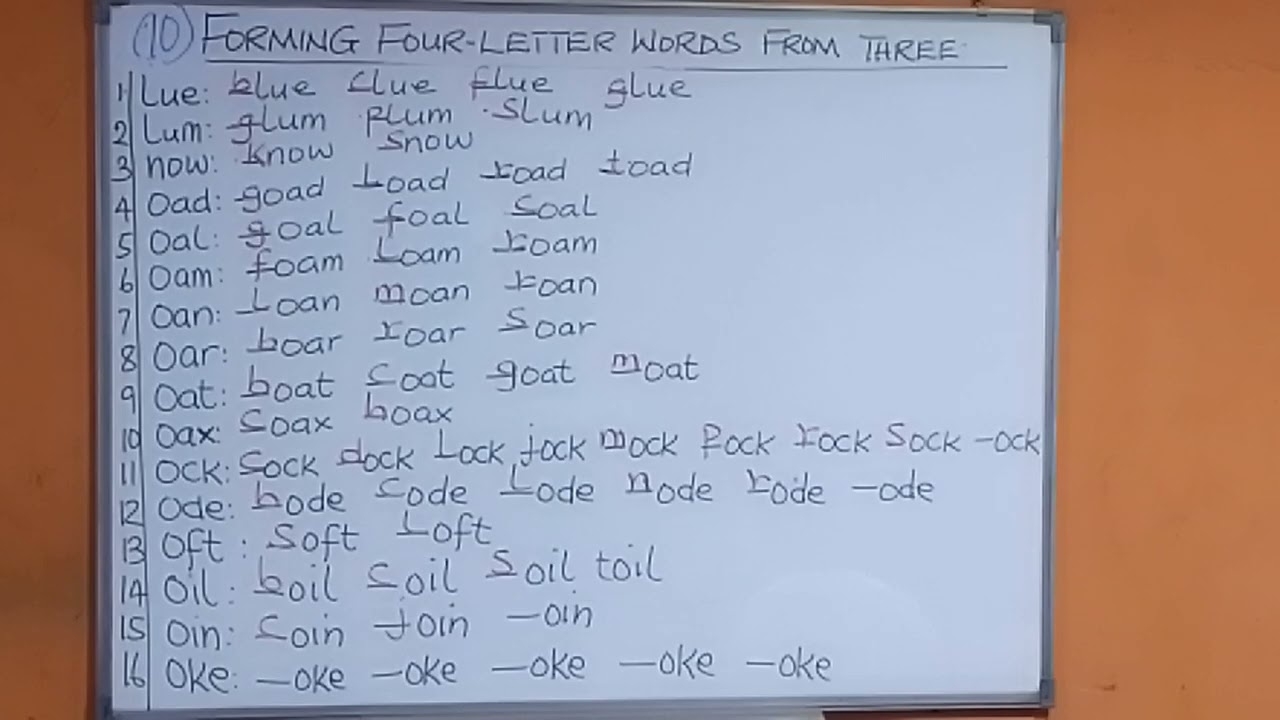 (10) FORMING FOUR-LETTER WORDS FROM THREE
1 Lue: blue clue flue glue
2 Lum: glum plum slum
3 now: know snow
4 Oad: goad load road toad
5 Oal: goal foal soal
6 Oam: foam Loam roam
7 Oan: Loan moan roan
8 Oar: boar roar soar
9 Oat: boat coat goat moat
10 Oax: coax boax
11 Ock: cock dock Lock jock mock Pock rock Sock -ock
12 Ode: bode code Lode node rode -ode
13 Oft: soft Loft
14 Oil: boil coil soil toil
15 Oin: coin join -oin
16 Oke: -oke -oke -oke -oke -oke